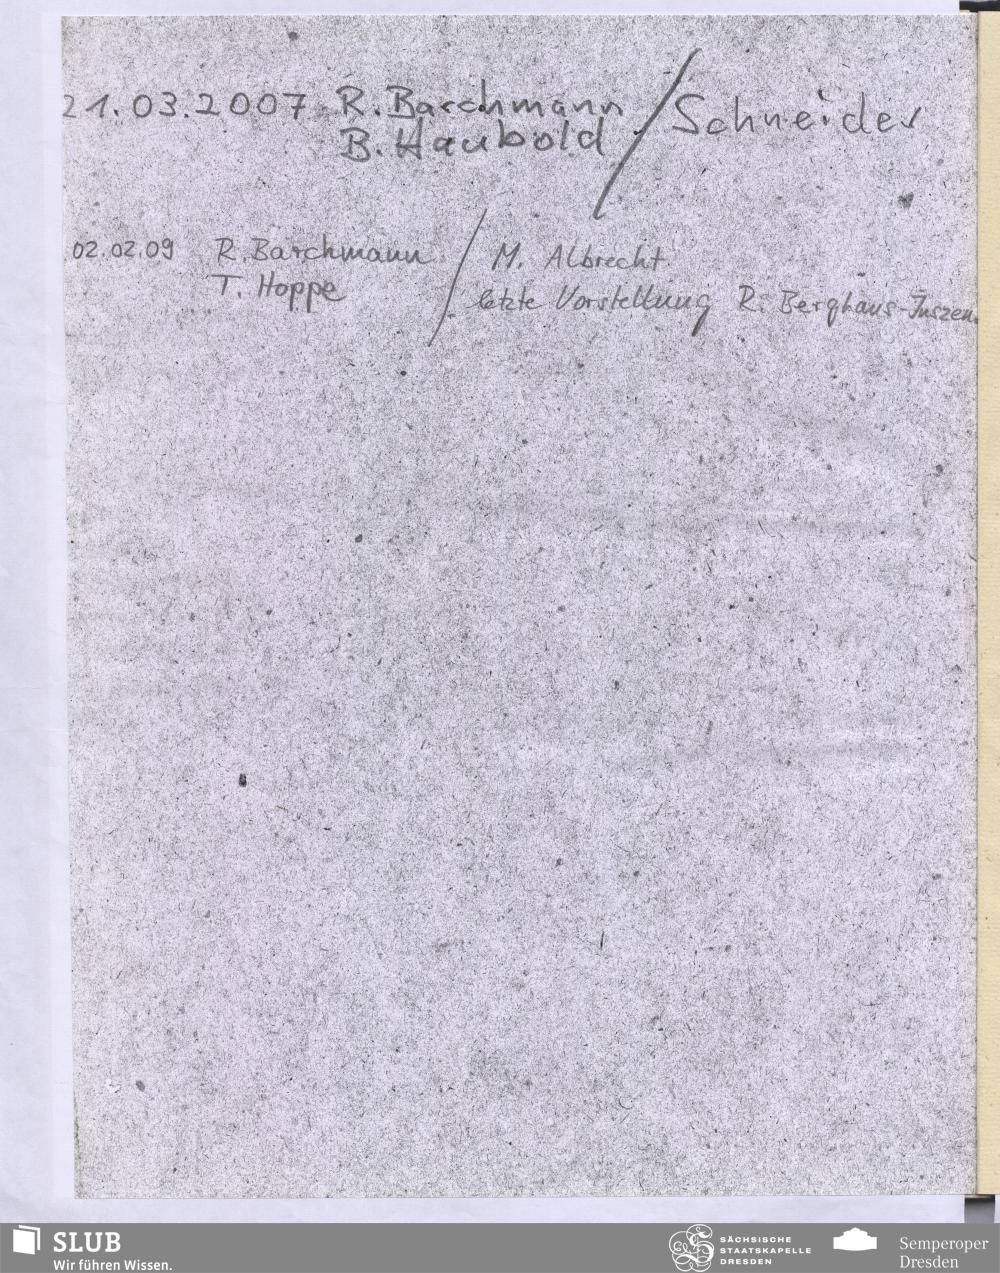 21.03.2007 R. Barchmann / Schneider
B. Haubold
02.02.09 R. Barchmann / M. Albrecht
T. Hoppe letzte Vorstellung R. Berghaus-Inszen.
SLUB
Wir führen Wissen.
SÄCHSISCHE
STAATSKAPELLE
DRESDEN
Semperoper
Dresden